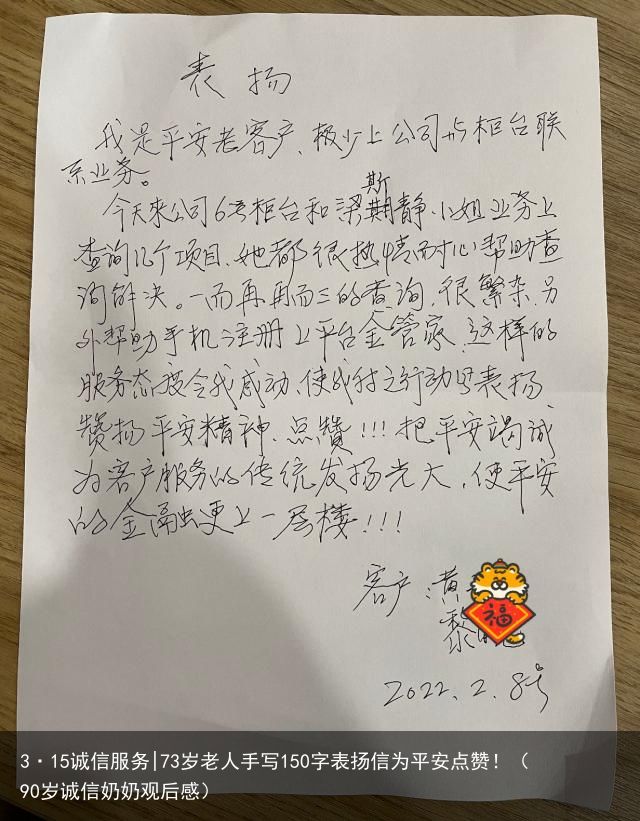 表扬
我是平安老客户、极少上公司与柜台联
系业务。
今天来公司6号柜台和梁斯期静小姐业务上
查询几个项目、她都很热情而耐心帮助查
询解决。一而再再而三的查询、很繁杂、另
外帮助手机注册上平台金管家、这样的
服务态度令我感动、使我付之行动以表扬
赞扬平安精神、点赞!!!把平安竭诚
为客户服务的传统发扬光大,使平安
的金融更上一层楼!!!
客户:黄
黎
福
2022.2.8号
3·15诚信服务|73岁老人手写150字表扬信为平安点赞!(
90岁诚信奶奶观后感)